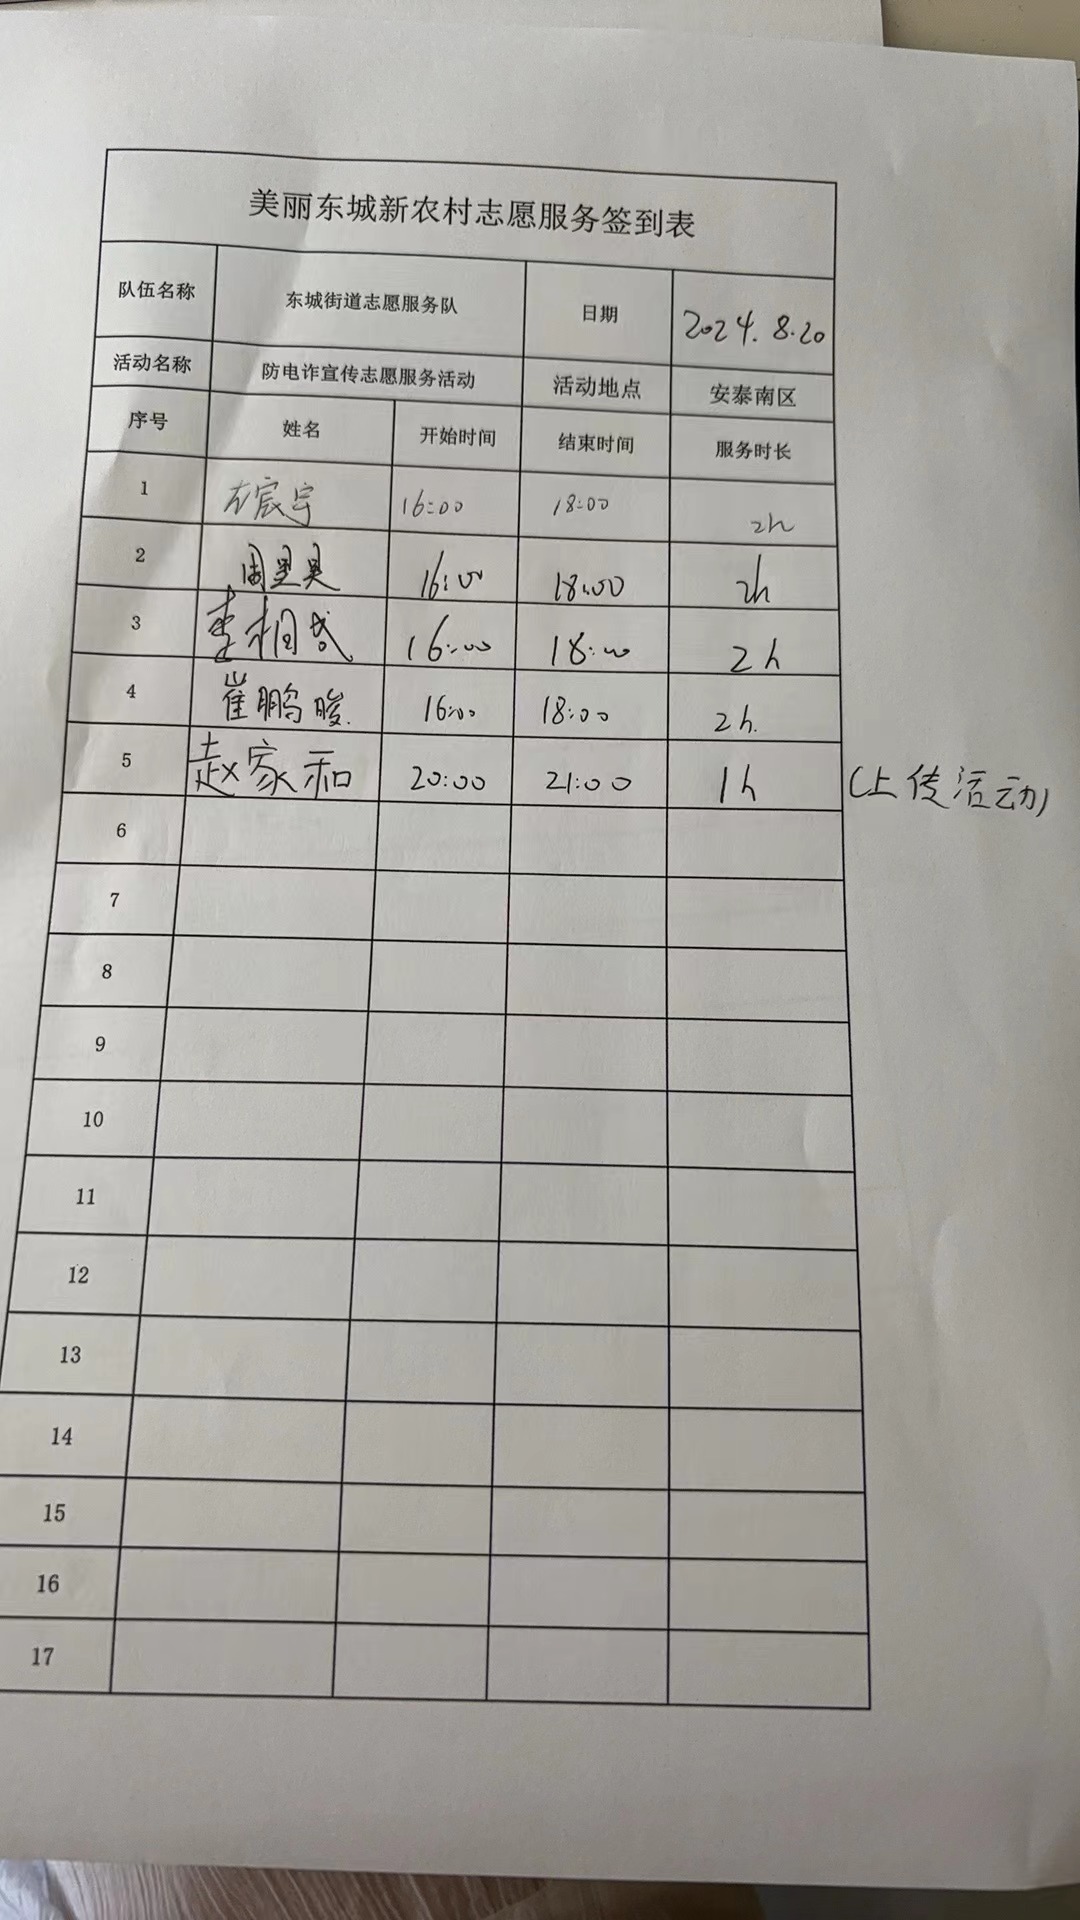 美丽东城新农村志愿服务签到表
队伍名称 东城街道志愿服务队 日期 2024.8.20
活动名称 防电诈宣传志愿服务活动 活动地点 安泰南区
序号 姓名 开始时间 结束时间 服务时长
1 左宸宇 16:00 18:00 2h
2 周 昊 16:00 18:00 2h
3 李相 16:00 18:00 2h
4 崔鹏骏 16:00 18:00 2h.
5 赵家和 20:00 21:00 1h (上传活动)
6
7
8
9
10
11
12
13
14
15
16
17